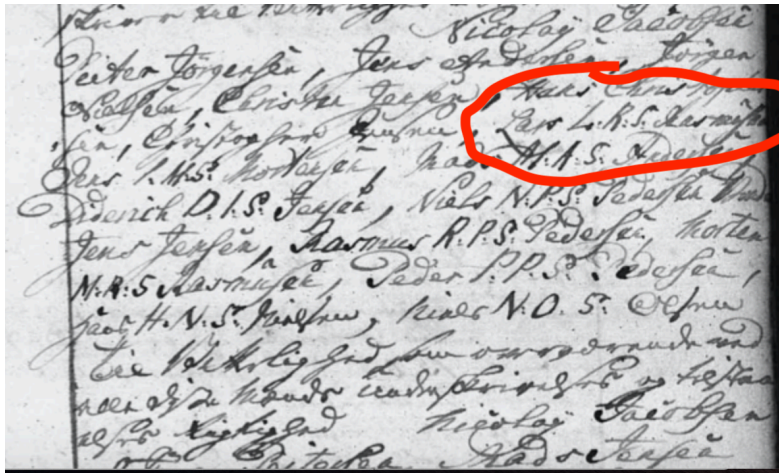 til Vitterlighed
Nicolaÿ Jacobsen
Peiter Jörgensen, Jens Andersen, Jörgen
Nielsen, Christen Jensen, Hans Christoph
sen, Christopher Hansen, Lars L.R.S. Rasmusen
Jens I.M.S. Mortensen, Mads M.A.S. Andersen
Diderich D.I.S. Jensen, Niels N.P.S. Pedersen
Jens Jensen, Rasmus R.P.S. Pedersen, Morten
M.R.S Rasmusen, Peder P.P.S. Pedersen,
Hans H.N.S. Nielsen, Niels N.O.S. Olsen
til Vitterlighed som overværende ved
disse Mænds underskrivelses og tilstaa
elses rigtighed Nicolaÿ Jacobsen
Mads Jensen